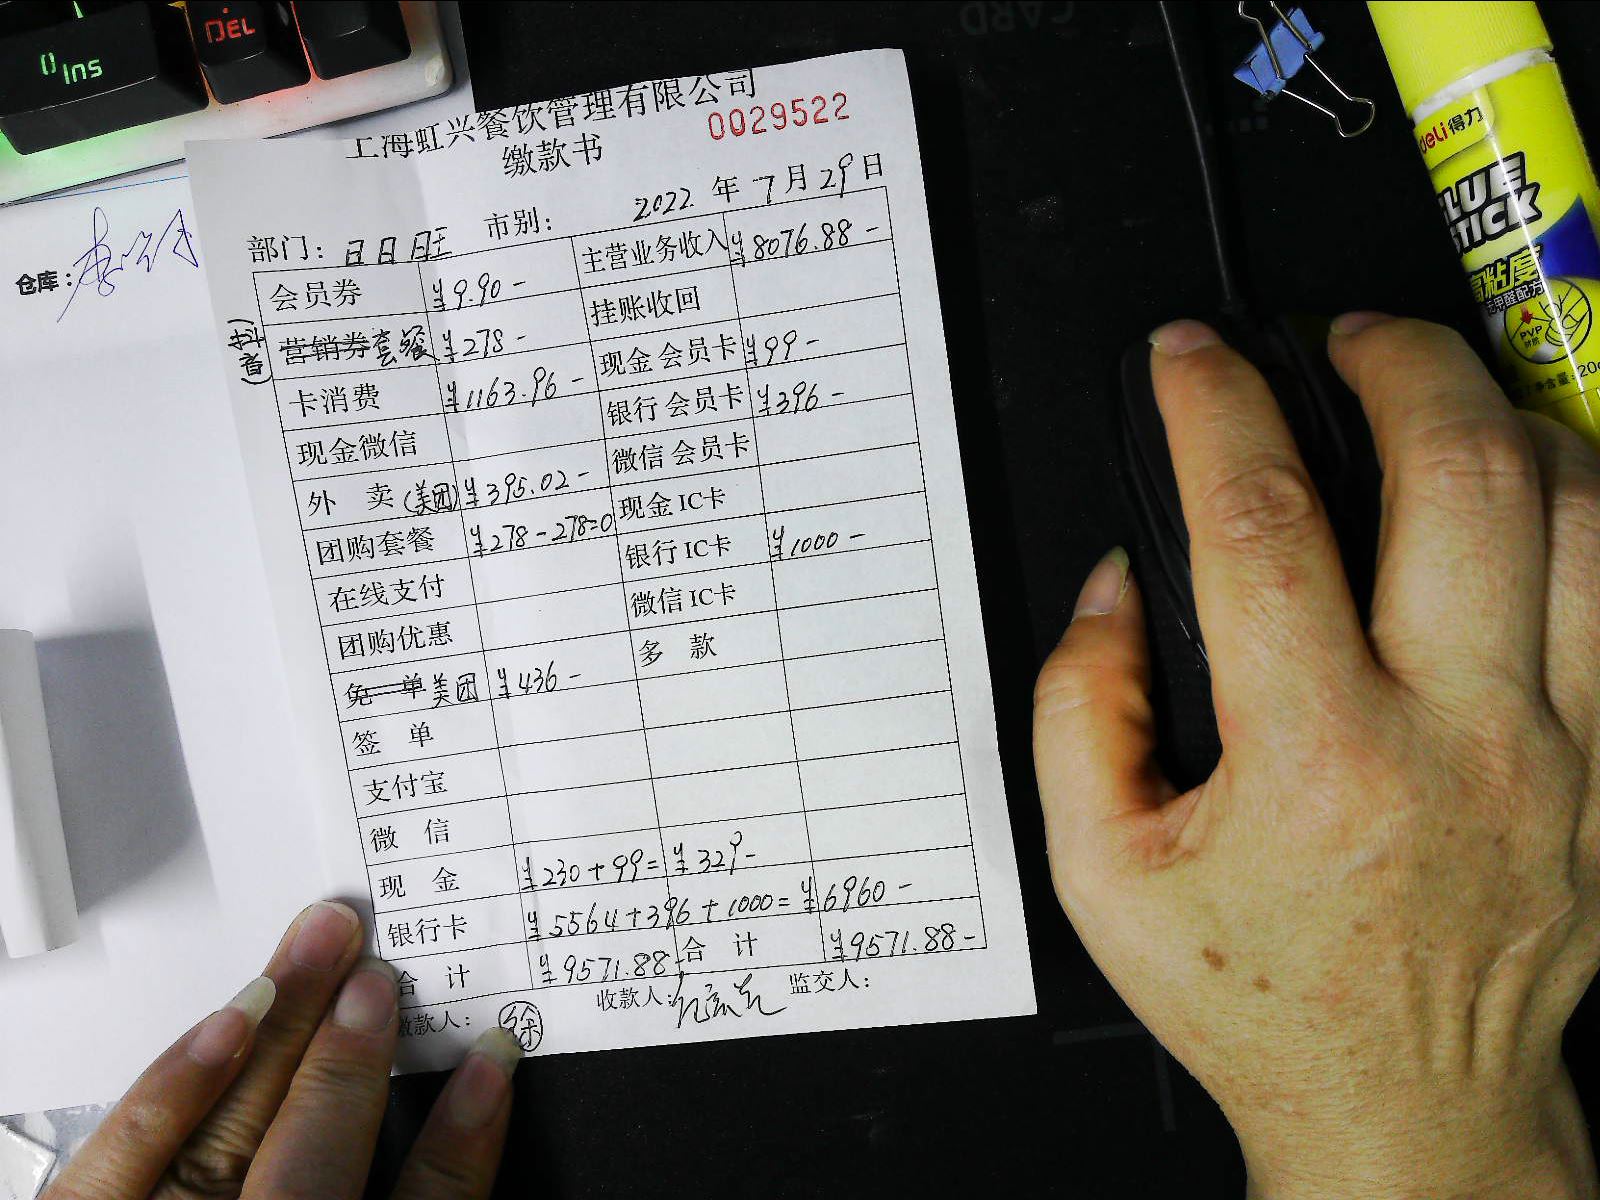 Ins
DEL
上海虹兴餐饮管理有限公司
0029522
缴款书
2022 年 7 月 29 日
部门: 日日旺 市别:
会员券 ¥9.90- 主营业务收入 ¥8076.88-
营销券套餐 ¥278- 挂账收回
(抖音)
卡消费 ¥1163.96- 现金 会员卡 ¥99-
现金微信 银行 会员卡 ¥396-
外 卖 (美团) ¥395.02- 微信 会员卡
团购套餐 ¥278-278=0 现金 IC卡
在线支付 银行 IC卡 ¥1000-
团购优惠 微信 IC卡
免 单 美团 ¥436- 多 款
签 单
支付宝
微 信
现 金 ¥230+99= ¥329-
银行卡 ¥5564+396+1000= ¥6960-
合 计 ¥9571.88- 合 计 ¥9571.88-
缴款人: 徐 收款人: 监交人:
仓库:
deli 得力
GLUE
STICK
高粘度
PVP